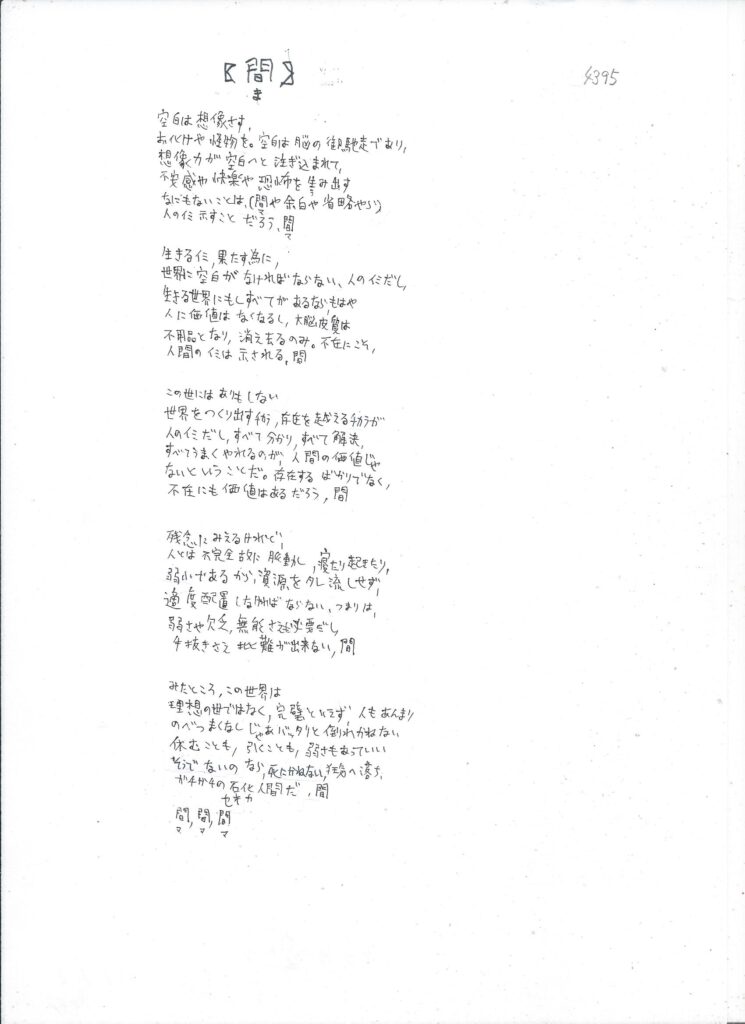 【間】
ま
4395
空白は想像さす、
お化けや怪物を。空白は脳の御馳走であり、
想像力が空白へと注ぎ込まれて、
不安感や快楽や恐怖を生み出す
なにもないことは、(間や余白や省略やら)
人のイミ示すことだろう、間
マ
生きるイミ、果たす為に、
世界に空白がなければならない、人のイミだし、
生きる世界にもしすべてがあるならもはや
人に価値はなくなるし、大脳皮質は
不用品となり、消え去るのみ。不在にこそ、
人間のイミは示される、間
この世にはありもしない
世界をつくり出すチカラ、存在を越えるチカラが
人のイミだし、すべて分かり、すべて解決、
すべてうまくやれるのが、人間の価値じゃ
ないということだ。存在するばかりでなく、
不在にも価値はあるだろう、間
残念にみえるけれど、
人とは不完全故に脈動し、寝たり起きたり、
弱小であるから、資源をタレ流しせず、
適度配置しなければならない、つまりは、
弱さや欠乏、無能さえ必要だし、
手抜きさえ非難が出来ない、間
みたところ、この世界は
理想の世ではなく、完璧といえず、人もあんまり
のべつまくなしじゃあバッタリと倒れかねない
休むことも、引くことも、弱さもあっていい
そうでないのなら、死にかねない、狂気へ落ち、
ガチガチの石化人間だ、間
セキカ
間、間、間
マ マ マ